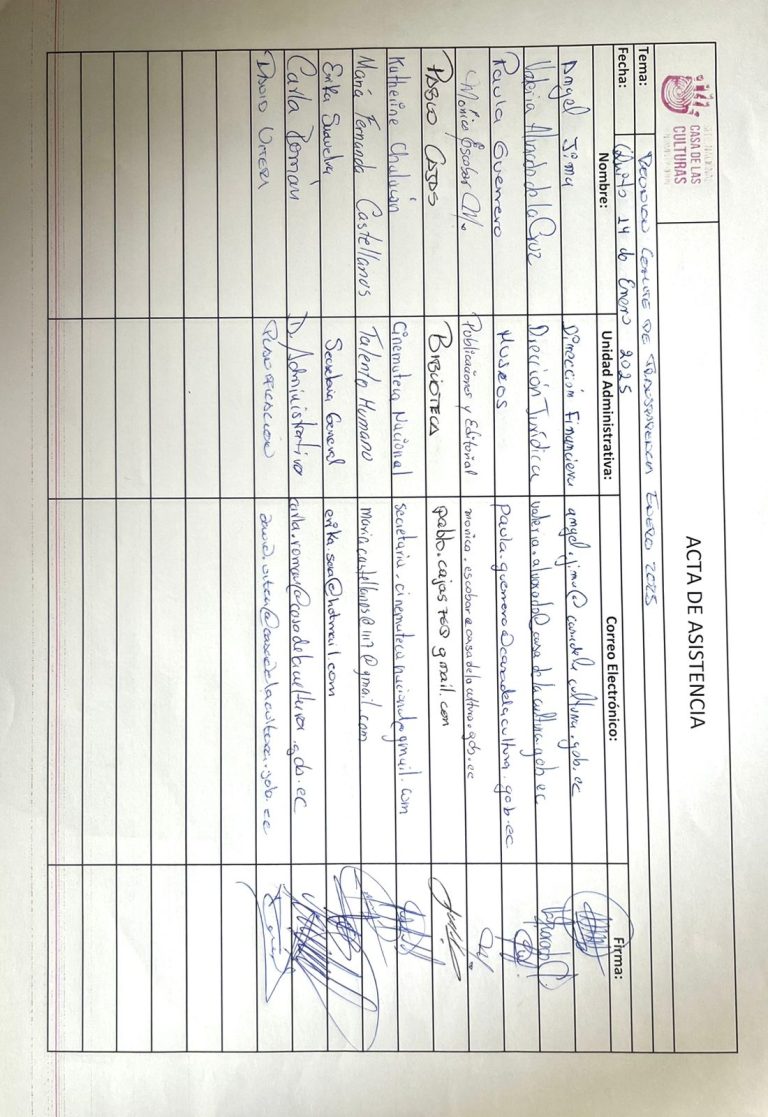 CASA DE LAS
CULTURAS
ACTA DE ASISTENCIA
Tema: Reunión Comité de Transparencia Enero 2025
Fecha: Quito 14 de Enero 2025
Nombre: Unidad Administrativa: Correo Electrónico: Firma:
Angel Jima Dirección Financiera angel.jima@casadelacultura.gob.ec
Valeria Alvarado de la Cruz Dirección Jurídica valeria.alvarado@casadelacultura.gob.ec
Paula Guerrero Museos paula.guerrero@casadelacultura.gob.ec
Mónica Escobar M. Publicaciones y Editorial monica.escobar@casadelacultura.gob.ec
Pablo Cajas Biblioteca pablo.cajas76@gmail.com
Katherine Cinemateca Nacional secretaria.cinematecanacional@gmail.com
María Fernanda Castellanos Talento Humano
Erika Secretaría General
Carla Román D. Administrativa carla.roman@casadelacultura.gob.ec
David Planificación